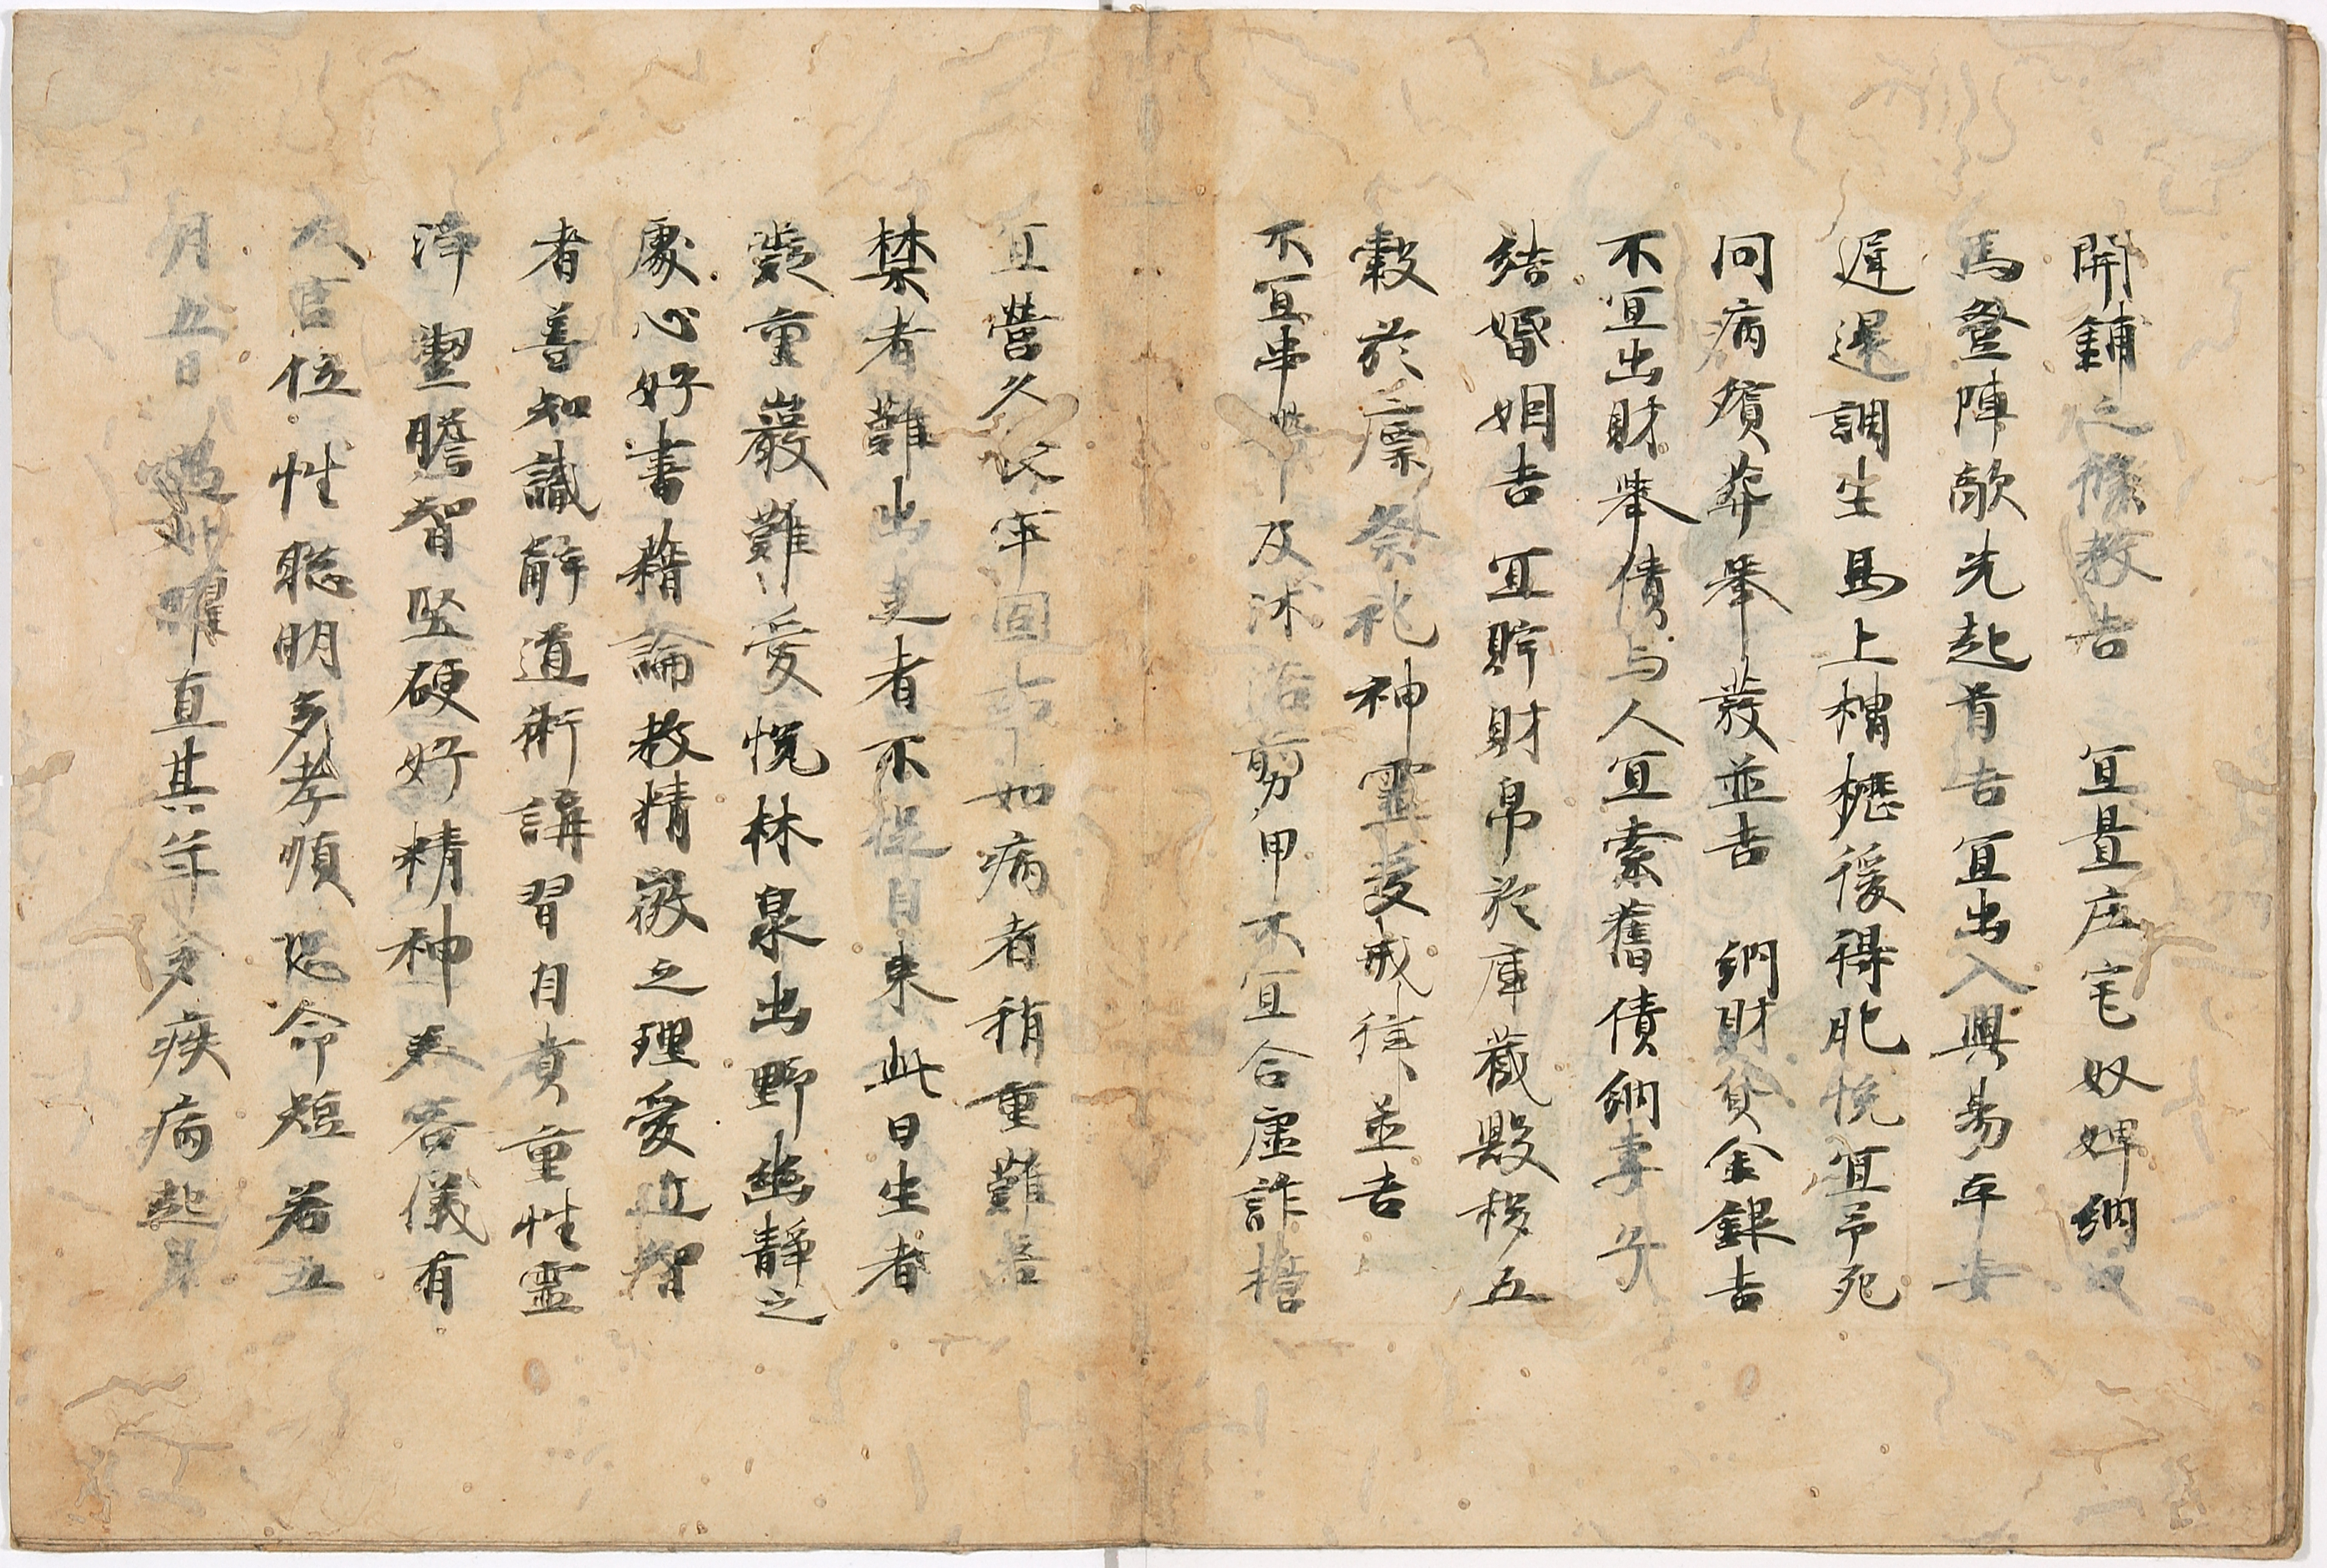 開鋪之條教吉　宜畺庄宅奴婢納
馬登陣敵先起首吉宜出入興易平安
遲還調生馬上槽櫪後得肥悅宜弔死
問病殯葬舉發並吉　納財貨金銀吉
不宜出財舉債与人宜索舊債納妻
結婚姻吉宜貯財帛於庫藏殿移五
穀於廩祭祀神靈受戒律並吉
不宜串帶及沐浴剪甲不宜合虛詐擔
宜營久牢固事如病者稍重難差
禁者難出走者不捉自來此日生者
凝重嚴難愛悅林泉出野幽靜之
處心好書藉論教精微之理愛近智
者善知識解道術講習自貴重性靈
淨潔瞻智堅硬好精神美容儀有
大官位性聡明多孝順恐命短若五
月五日遇此曜直其年多疾病起